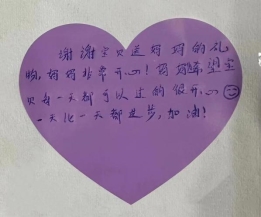 谢谢宝贝送妈妈的礼
物，妈妈非常开心！妈妈希望宝
贝每一天都可以过的很开心
一天比一天都进步，加油！